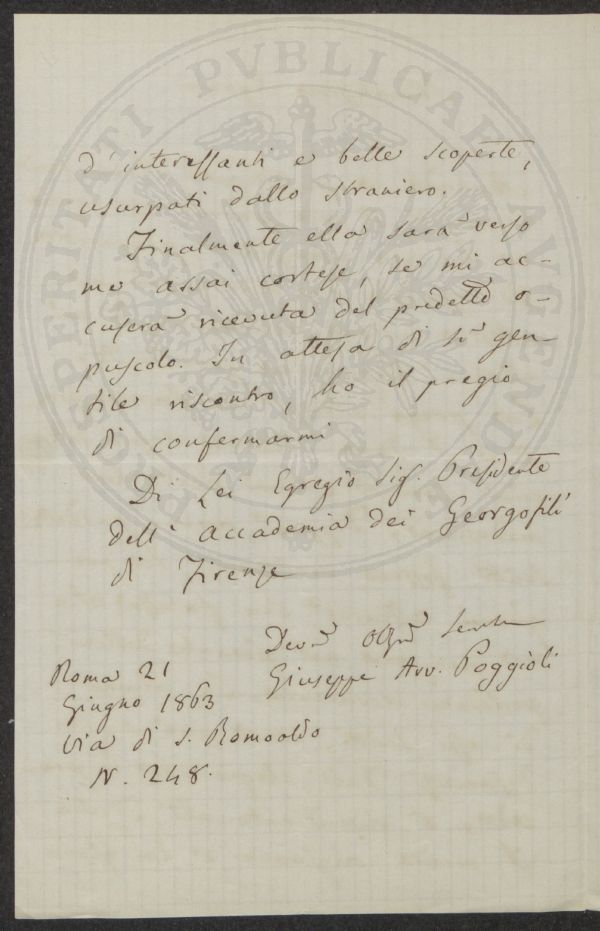 PROSPERITATI PVBLICAE AVGENDAE
d'interessanti e belle scoperte,
usurpati dallo straniero.
Finalmente ella sarà verso
me assai cortese, se mi ac-
cuserà ricevuta del predetto o-
puscolo. In attesa di sì gen-
tile riscontro, ho il pregio
di confermarmi
Di Lei Egregio Sig. Presidente
dell'Accademia dei Georgofili
di Firenze
Devmo Obbmo
Giuseppe Avv. Poggioli
Roma 21
Giugno 1863
Via di S. Romoaldo
N. 248.